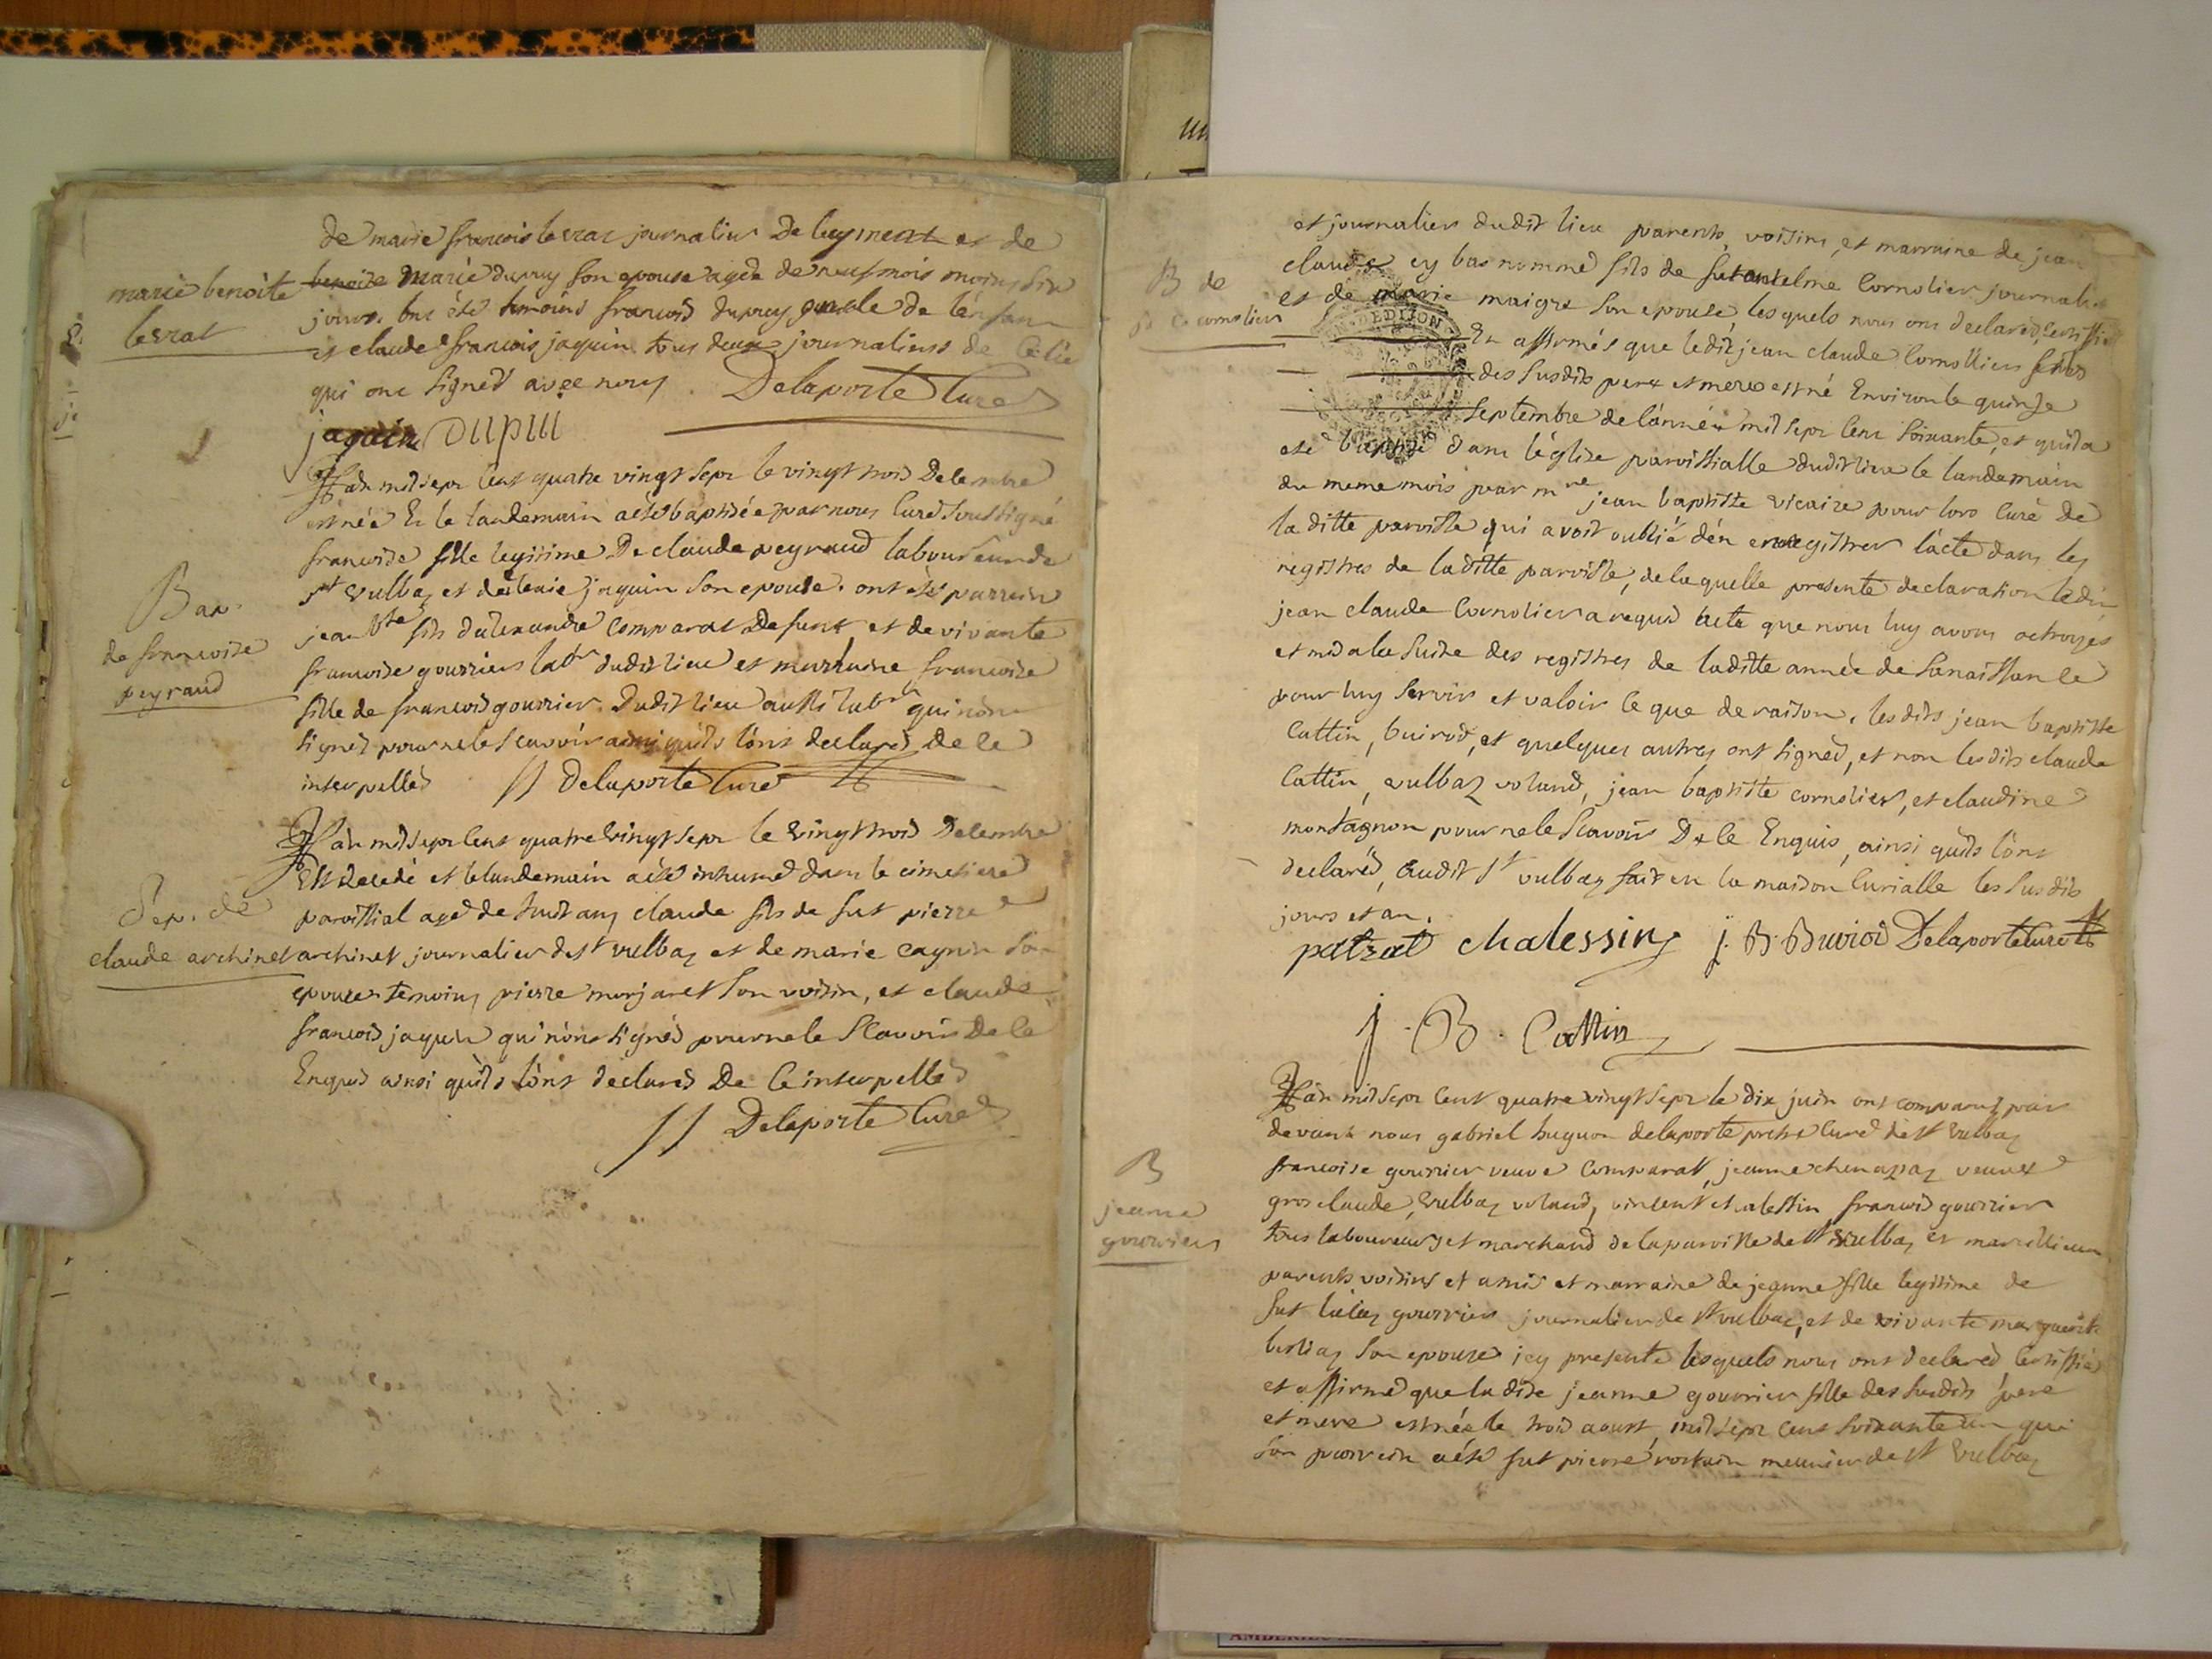 marie benoite
levrat
de marie francois levrat journalier de leyment et de
benoite marie dupuy son epouse agée de neuf mois moins six
jours. ont été temoins francois dupuy oncle de l'enfant
et claude francois jaquin tous deux journaliers de ce lieu
qui ont signed avec nous. Delaporte Cure
jaquin DUPUI
Bap.
de francoise
peyraud
L'an mil sept cent quatre vingt sept le vingt trois Decembre
est née Et le landemain a été baptisée par nous Curé soussigné
francoise fille legitime De claude peyraud laboureur de
st vulbaz et de jaquin son epouse. ont été parrein
jean bte fils d'alexandre comparat defunt et de vivante
francoise gourrier labr dudit lieu et marraine francoise
fille de francois gourrier. Dudit lieu aussi labr qui n'ont
signé pour ne le scavoir ainsi qu'ils l'ont declaré De ce
interpellés // Delaporte Curé
Sep. de
claude archinet
L'an mil sept cent quatre vingt sept le vingt trois Decembre
Est decedé et le landemain a été inhumé dans le cimetiere
paroissial agé de huit ans claude fils de fut pierre
archinet journalier de st vulbaz et de marie cagnin son
epouse temoins pierre morjaret son voisin, et claude
francois jaquin qui n'ont signés pour ne le scavoir De ce
Enquis ainsi qu'ils l'ont declaré De ce interpellés
// Delaporte Curé
B de
j c cornolier
et journalier dudit lieu parents, voisins, et marraine de jean
claude cy bas nommé fils de fut antelme Cornolier journalier
et de marie maigre son epouse lesquels nous ont declaré, certiffié
Et affirmés que ledit jean claude Cornollier fils
des susdits pere et mere est né Environ le quinze
septembre de l'année mil sept cent soixante, et qu'il a
eté baptisé dans l'église paroissialle dudit lieu le landemain
du meme mois par mre jean baptiste vicaire pour lors Curé de
la ditte paroisse qui avoit oublié d'en enregistrer l'acte dans les
registres de laditte paroisse, de laquelle presente declaration ledit
jean claude Cornolier a requis acte que nous luy avons octroyés
et mis a la suite des registres de laditte année de sa naissance
pour luy servir et valoir ce que de raison. lesdits jean baptiste
Cattin, buirod, et quelques autres ont signed, et non lesdits claude
Cattin, vulbaz voland, jean baptiste cornolier, et claudine
montagnon pour ne le scavoir De ce Enquis, ainsi qu'ils l'ont
declarés, audit st vulbaz fait en la maison Curialle les susdits
jours et an.
patrat chalessin j. B. Buiriod Delaporte Curé
j. B. Cattin
B
jeanne
gourrier
L'an mil sept cent quatre vingt sept le dix juin ont comparus par
devant nous gabriel huguon delaporte pretre Curé de st vulbaz
francoise gourrier veuve comparat, jeanne chenavaz veuve
grosclaude, vulbaz voland, vincent chalessin francois gourrier
tous laboureurs et marchand de la paroisse de st vulbaz et marcillieux
parents voisins et amis et marraine de jeanne fille legitime de
fut gourrier journalier de st vulbaz, et de vivante marguerite
berliaz son epouse icy presente lesquels nous ont declaré certiffié
et affirmé que la dite jeanne gourrier fille des susdits pere
et mere est née le trois aoust mil sept cent soixante un que
son parrein a été fut pierre rostain meunier de st vulbaz